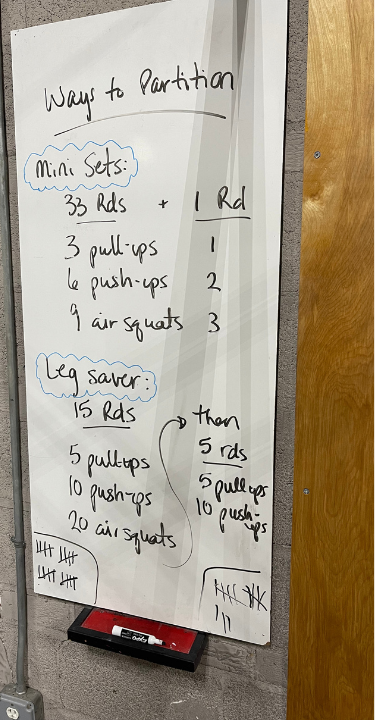 Ways to Partition
Mini Sets:
33 Rds + 1 Rd
3 pull-ups 1
6 push-ups 2
9 air squats 3
Leg saver:
15 Rds
5 pull-ups
10 push-ups
20 air squats
then
5 rds
5 pull-ups
10 push-
ups